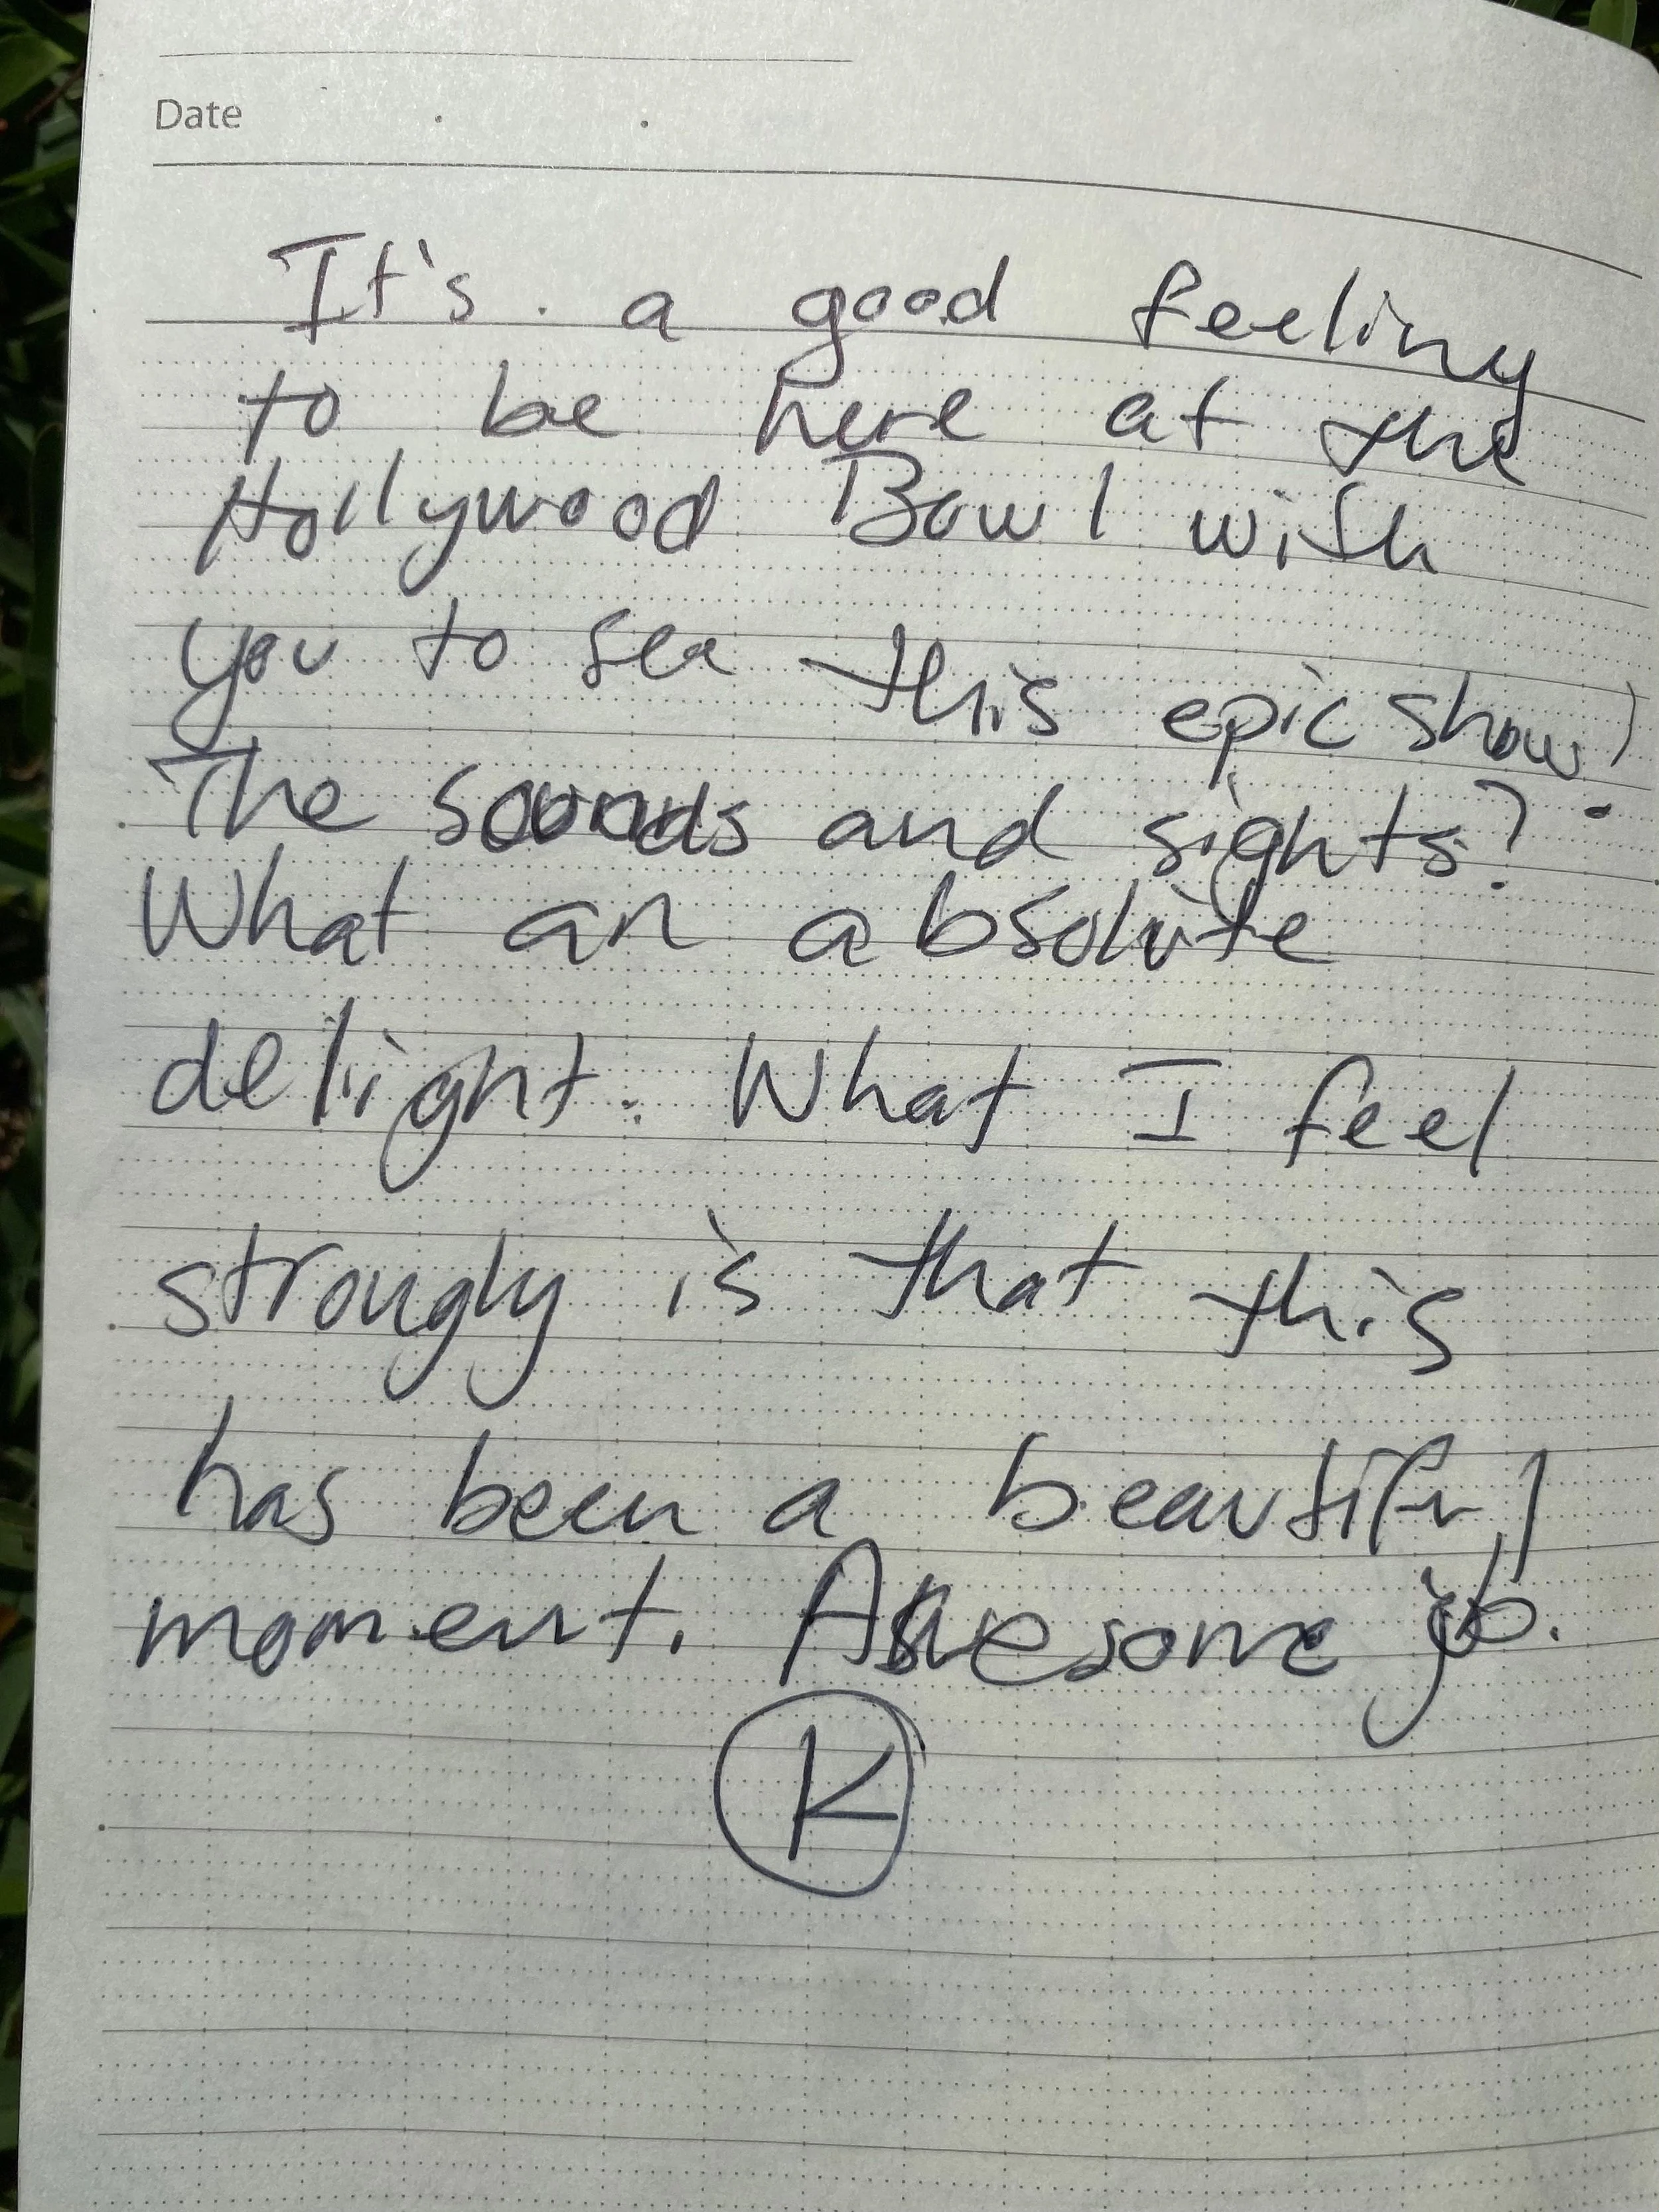 Date
It's a good feeling
to be here at the
Hollywood Bowl with
you to see this epic show!
The sounds and sights?
What an absolute
delight. What I feel
strongly is that this
has been a beautiful
moment. Awesome job.
K